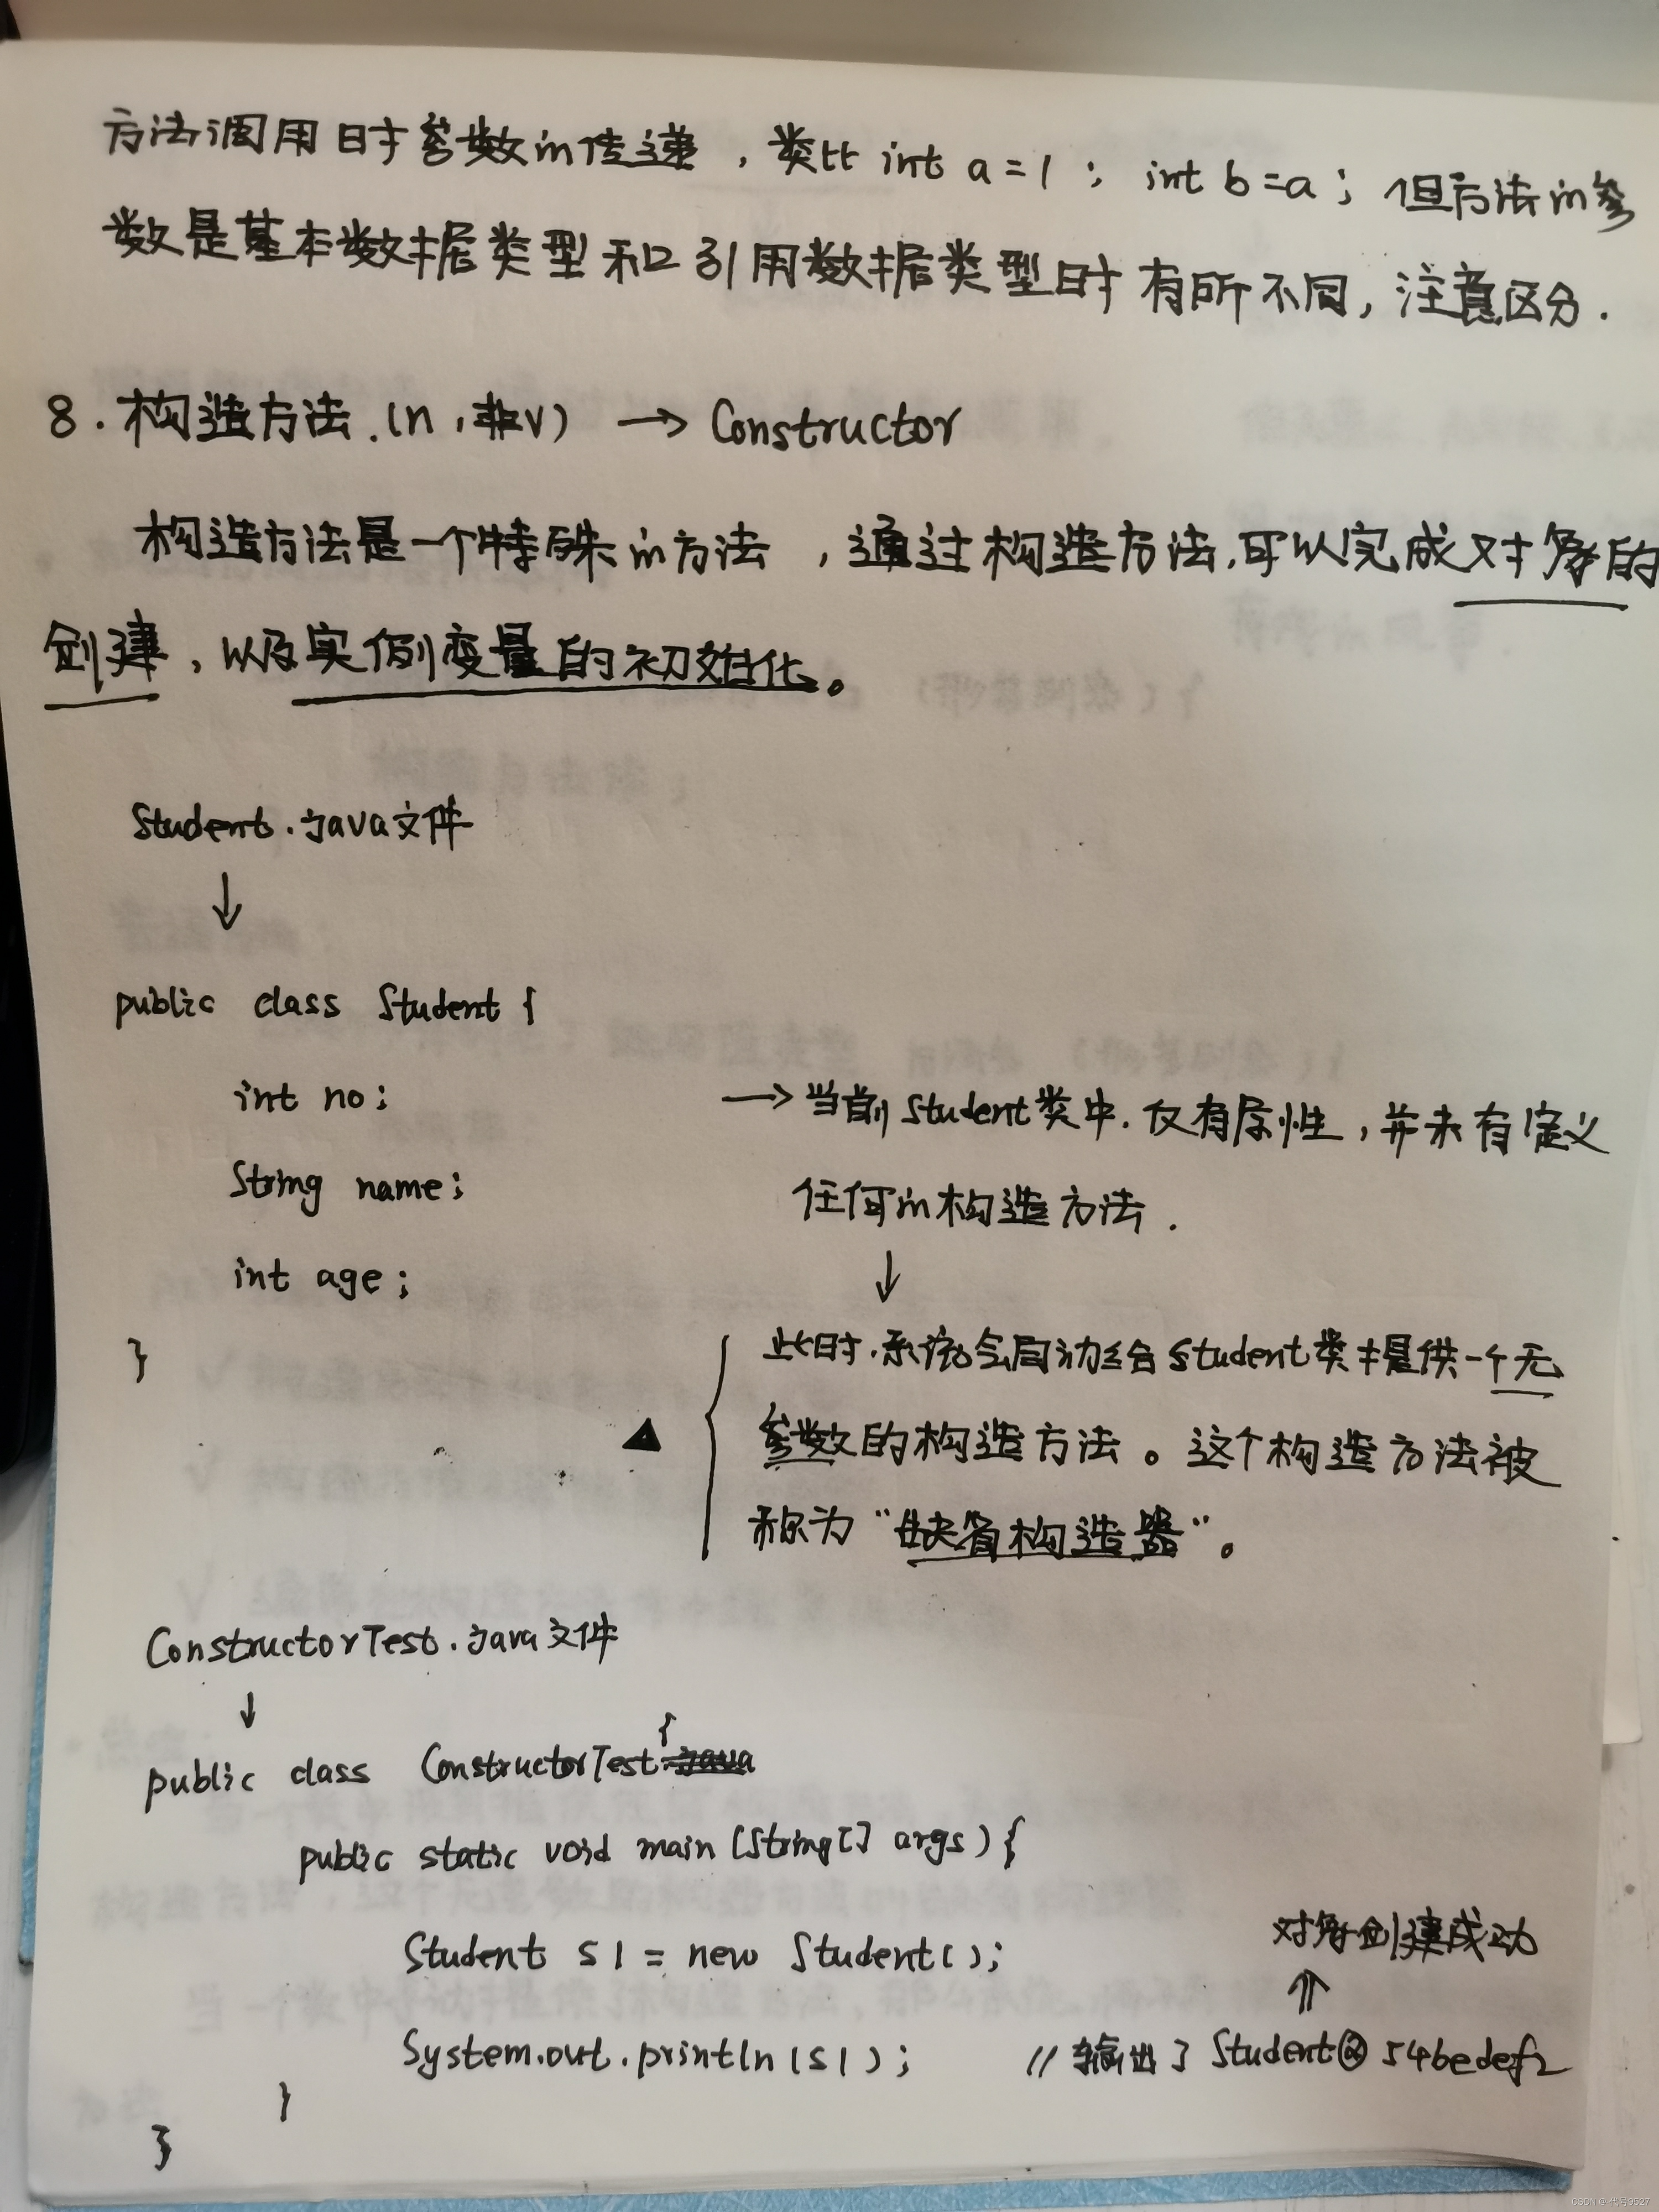 方法调用时参数的传递，类比 int a = 1； int b = a； 但方法的参
数是基本数据类型和引用数据类型时有所不同，注意区分.
8. 构造方法.(n，非v) → Constructor
构造方法是一个特殊的方法，通过构造方法,可以完成对象的
创建，以及实例变量的初始化。
Student.java文件
↓
public class Student {
int no;
→ 当前Student类中.仅有属性，并未有定义
String name;
任何的构造方法.
↓
int age;
此时.系统会自动给Student类提供一个无
}
▲
参数的构造方法。这个构造方法被
称为“缺省构造器”。
ConstructorTest.java文件
↓
public class ConstructorTest{
public static void main (String[] args) {
对象创建成功
Student s1 = new Student();
⇑
System.out.println(s1); // 输出了 Student@54bedef2
}
}
CSDN @-代号9527